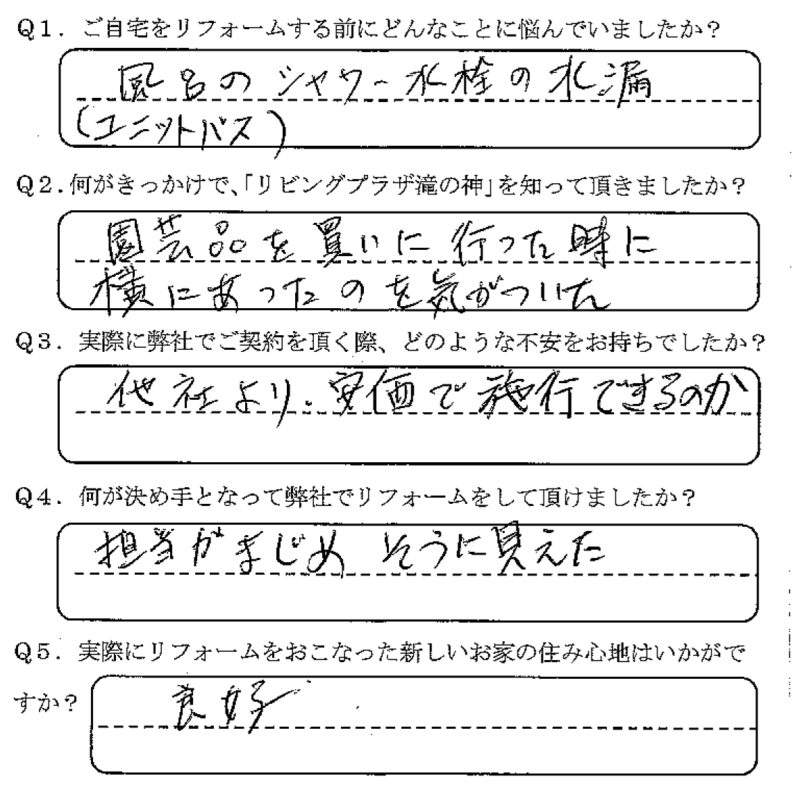 Q1．ご自宅をリフォームする前にどんなことに悩んでいましたか？
風呂のシャワー水栓の水漏
(ユニットバス)
Q2．何がきっかけで、「リビングプラザ滝の神」を知って頂きましたか？
園芸品を買いに行った時に
横にあったのを気がついた
Q3．実際に弊社でご契約を頂く際、どのような不安をお持ちでしたか？
他社より、安価で施行できるのか
Q4．何が決め手となって弊社でリフォームをして頂けましたか？
担当がまじめそうに見えた
Q5．実際にリフォームをおこなった新しいお家の住み心地はいかがで
すか？
良好